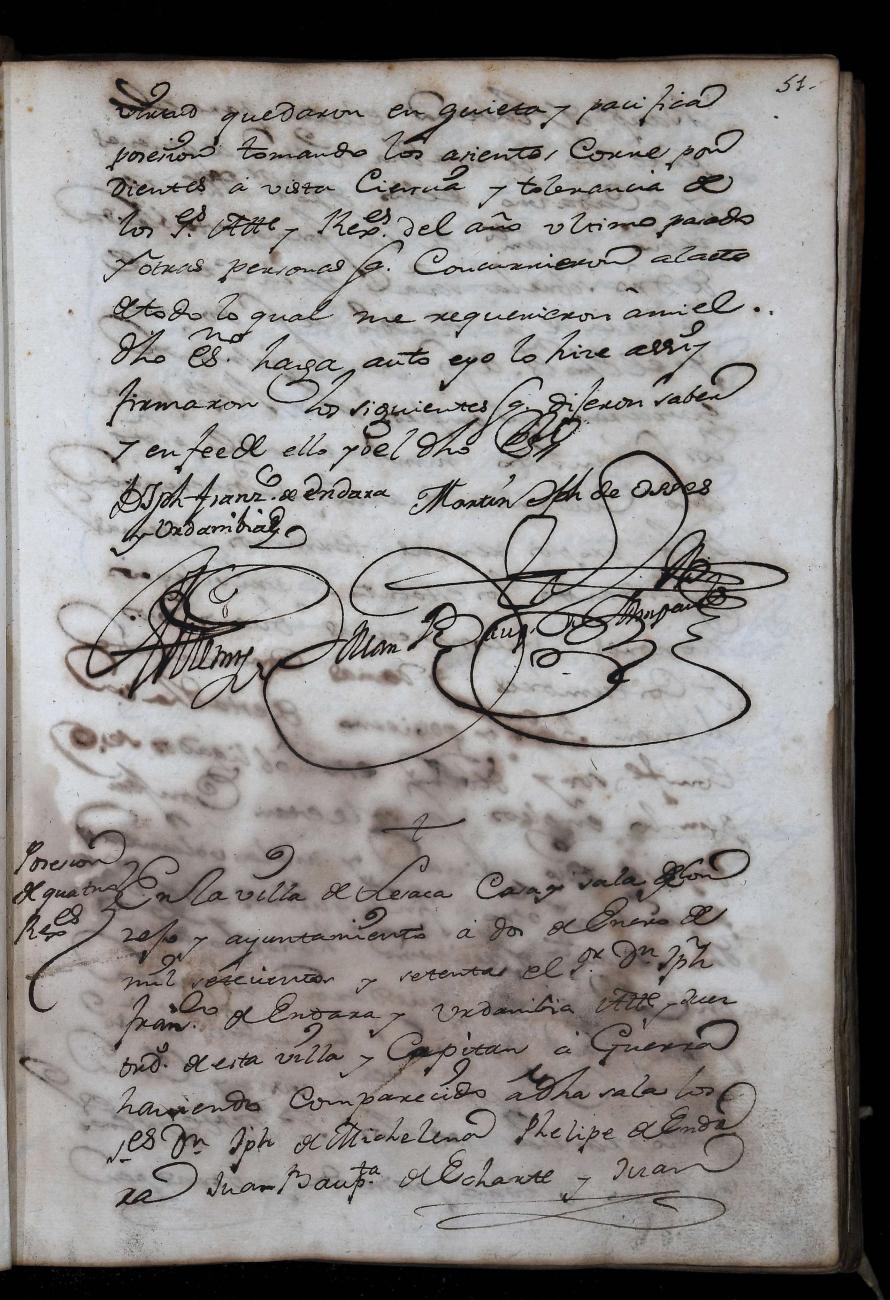 51.
virtud quedaron en quieta y pacifica
posesion tomando los asientos Corres pon
dientes a vista Ciencia y tolerancia de
los S.es Alc.e y Rex.es del año ultimo pasado
y otras personas q. Concurrieron alacto
de todo lo qual me requirieron âmi el
dho es.no haga auto eyo lo hize assi y
firmaron los siquientes q. dijeron saber
y en fee de ello yo el dho es.no
D Jph Franz.co de Endara Martin Jph de Osses
y Urdanibia
Juan Baup.
+
Posesion
de quatro
Rex.es
En la villa de Lesaca Casa y sala de Con
sejo y ayuntamiento a dos de Enero de
mil setecientos y setenta el S.r Dn Jph
Fran.co de Endara y Urdanibia Alc.e y Juez
ord.o de esta villa y Capitan a Guerra
haviendo Comparecido a dha sala los
S.es Dn Jph de Michelena Phelipe de Enda
ra Juan Baup.ta de Echarte y Juan